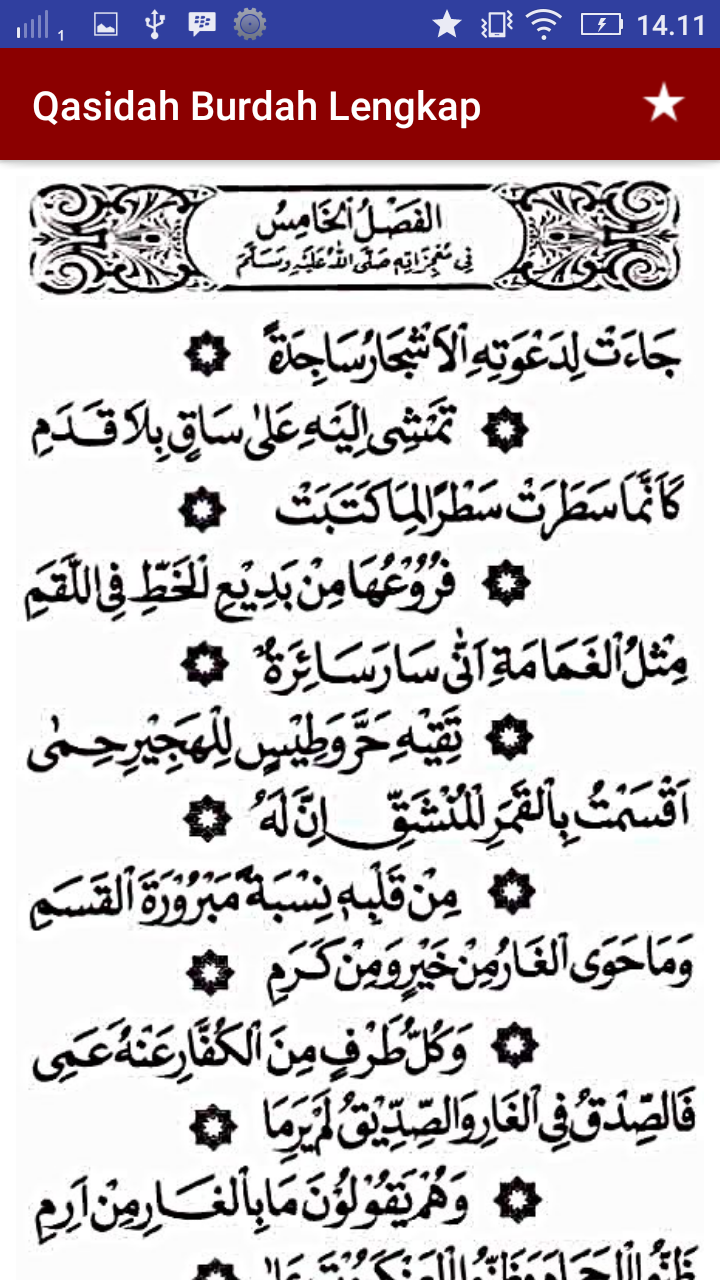 1 14.11
Qasidah Burdah Lengkap
الفَصْلُ الخَامِسُ
فِي مُعْجِزَاتِهِ صَلَّى اللهُ عَلَيْهِ وَسَلَّمَ
جَاءَتْ لِدَعْوَتِهِ الْاَشْجَارُ سَاجِدَةً
تَمْشِى اِلَيْهِ عَلَى سَاقٍ بِلَا قَدَمِ
كَاَنَّمَا سَطَرَتْ سَطْرًا لِمَا كَتَبَتْ
فُرُوْعُهَا مِنْ بَدِيْعِ الْخَطِّ فِى اللَّقَمِ
مِثْلُ الْغَمَامَةِ اَنّٰى سَارَ سَائِرَةٌ
تَقِيْهِ حَرَّ وَطِيْسٍ لِلْهَجِيْرِ حِمٰى
اَقْسَمْتُ بِالْقَمَرِ الْمُنْشَقِّ اِنَّ لَهُ
مِنْ قَلْبِهِ نِسْبَةً مَبْرُوْرَةَ الْقَسَمِ
وَمَا حَوَى الْغَارُ مِنْ خَيْرٍ وَمِنْ كَرَمِ
وَكُلُّ طَرْفٍ مِنَ الْكُفَّارِ عَنْهُ عَمِى
فَالصِّدْقُ فِى الْغَارِ وَالصِّدِّيْقُ لَمْ يَرِمَا
وَهُمْ يَقُوْلُوْنَ مَا بِالْغَارِ مِنْ اَرِمِ